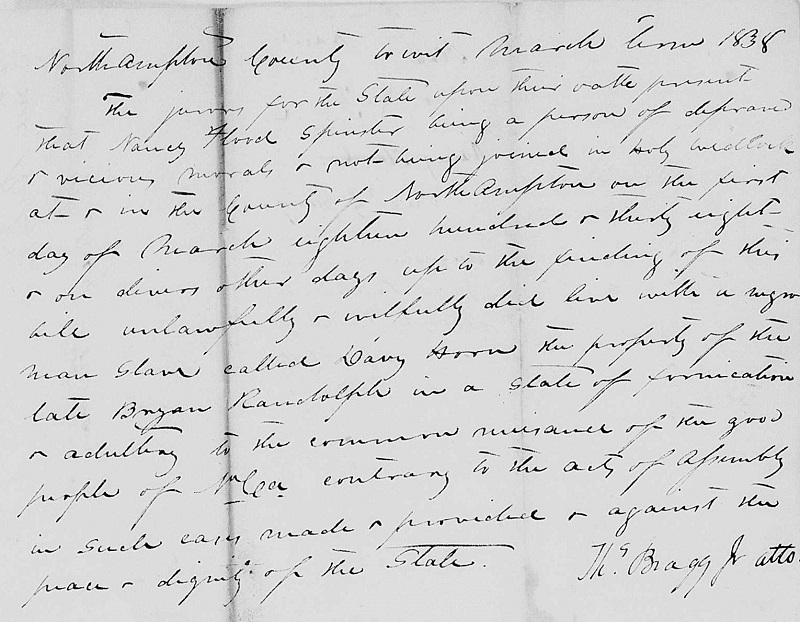 Northampton County to wit March Term 1838
The jurors for the State upon their oath present
that Nancy Flood Spinster being a person of depraved
& vicious morals & not being joined in Holy Wedlock
at & in the County of Northampton on the first
day of March eighteen hundred & thirty eight
& on divers other days up to the finding of this
bill unlawfully & wilfully did live with a negro
man Slave called Davy Horn the property of the
late Bryan Randolph in a State of fornication
& adultery to the common nuisance of the good
people of N. Ca. contrary to the acts of Assembly
in such cases made & provided & against the
peace & dignity of the State.
Thos Bragg Jr atto.